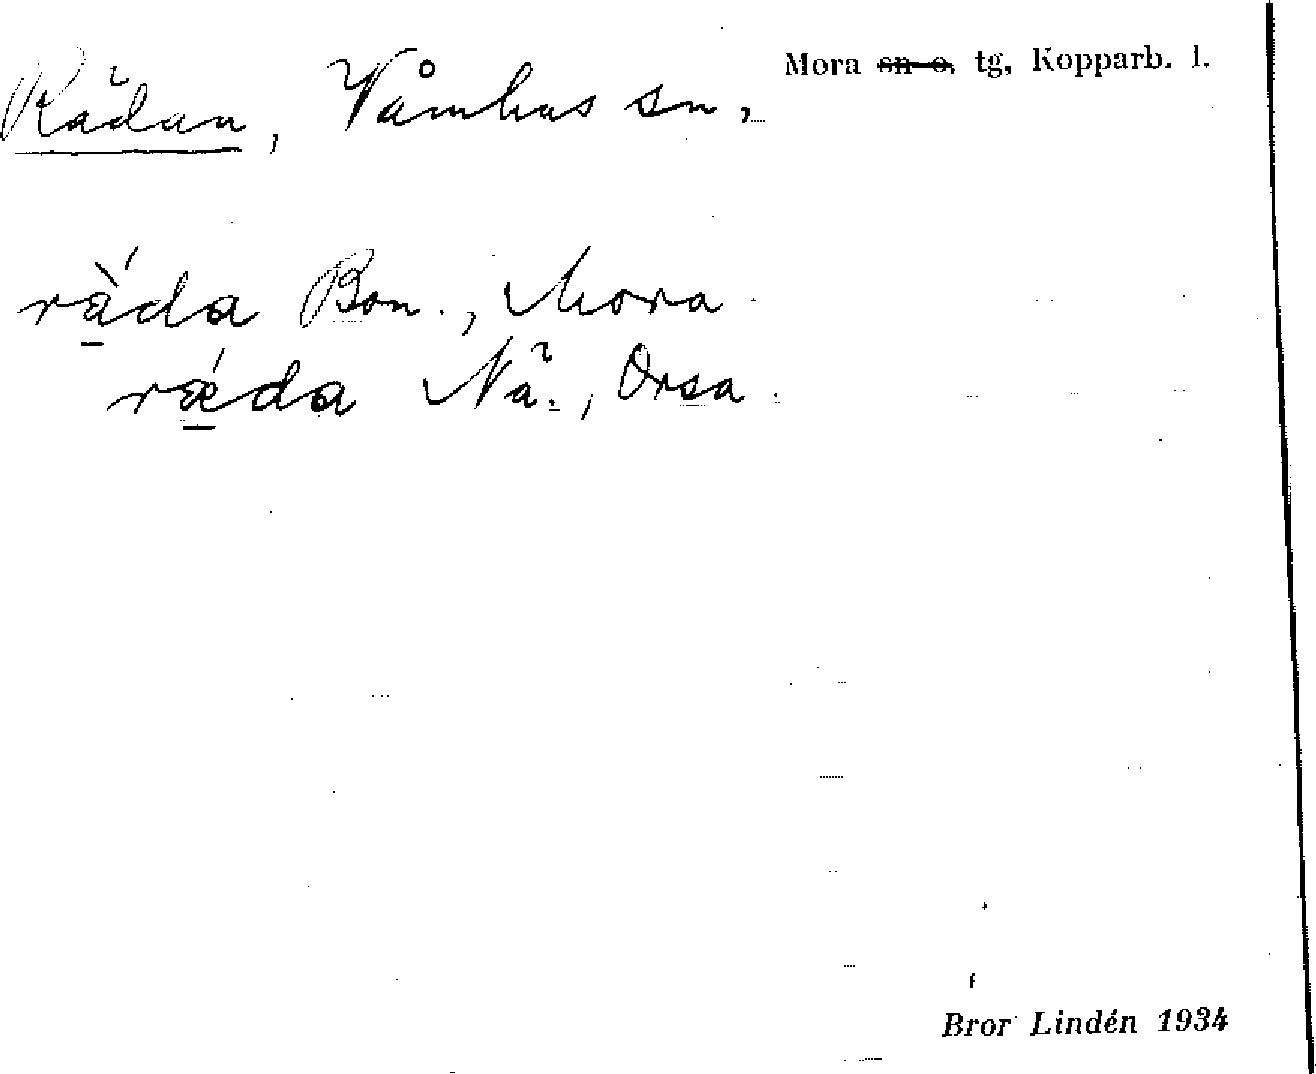 Rädan, Våmhus sn, Mora sn o. tg, Kopparb. l.
räda Bon., Mora
räda Nä., Orsa.
Bror Lindén 1934